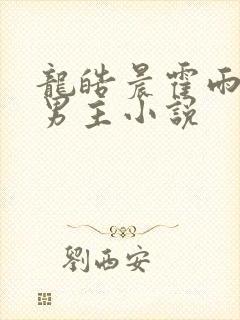 龍皓晨霍雨
男主小說
劉西安